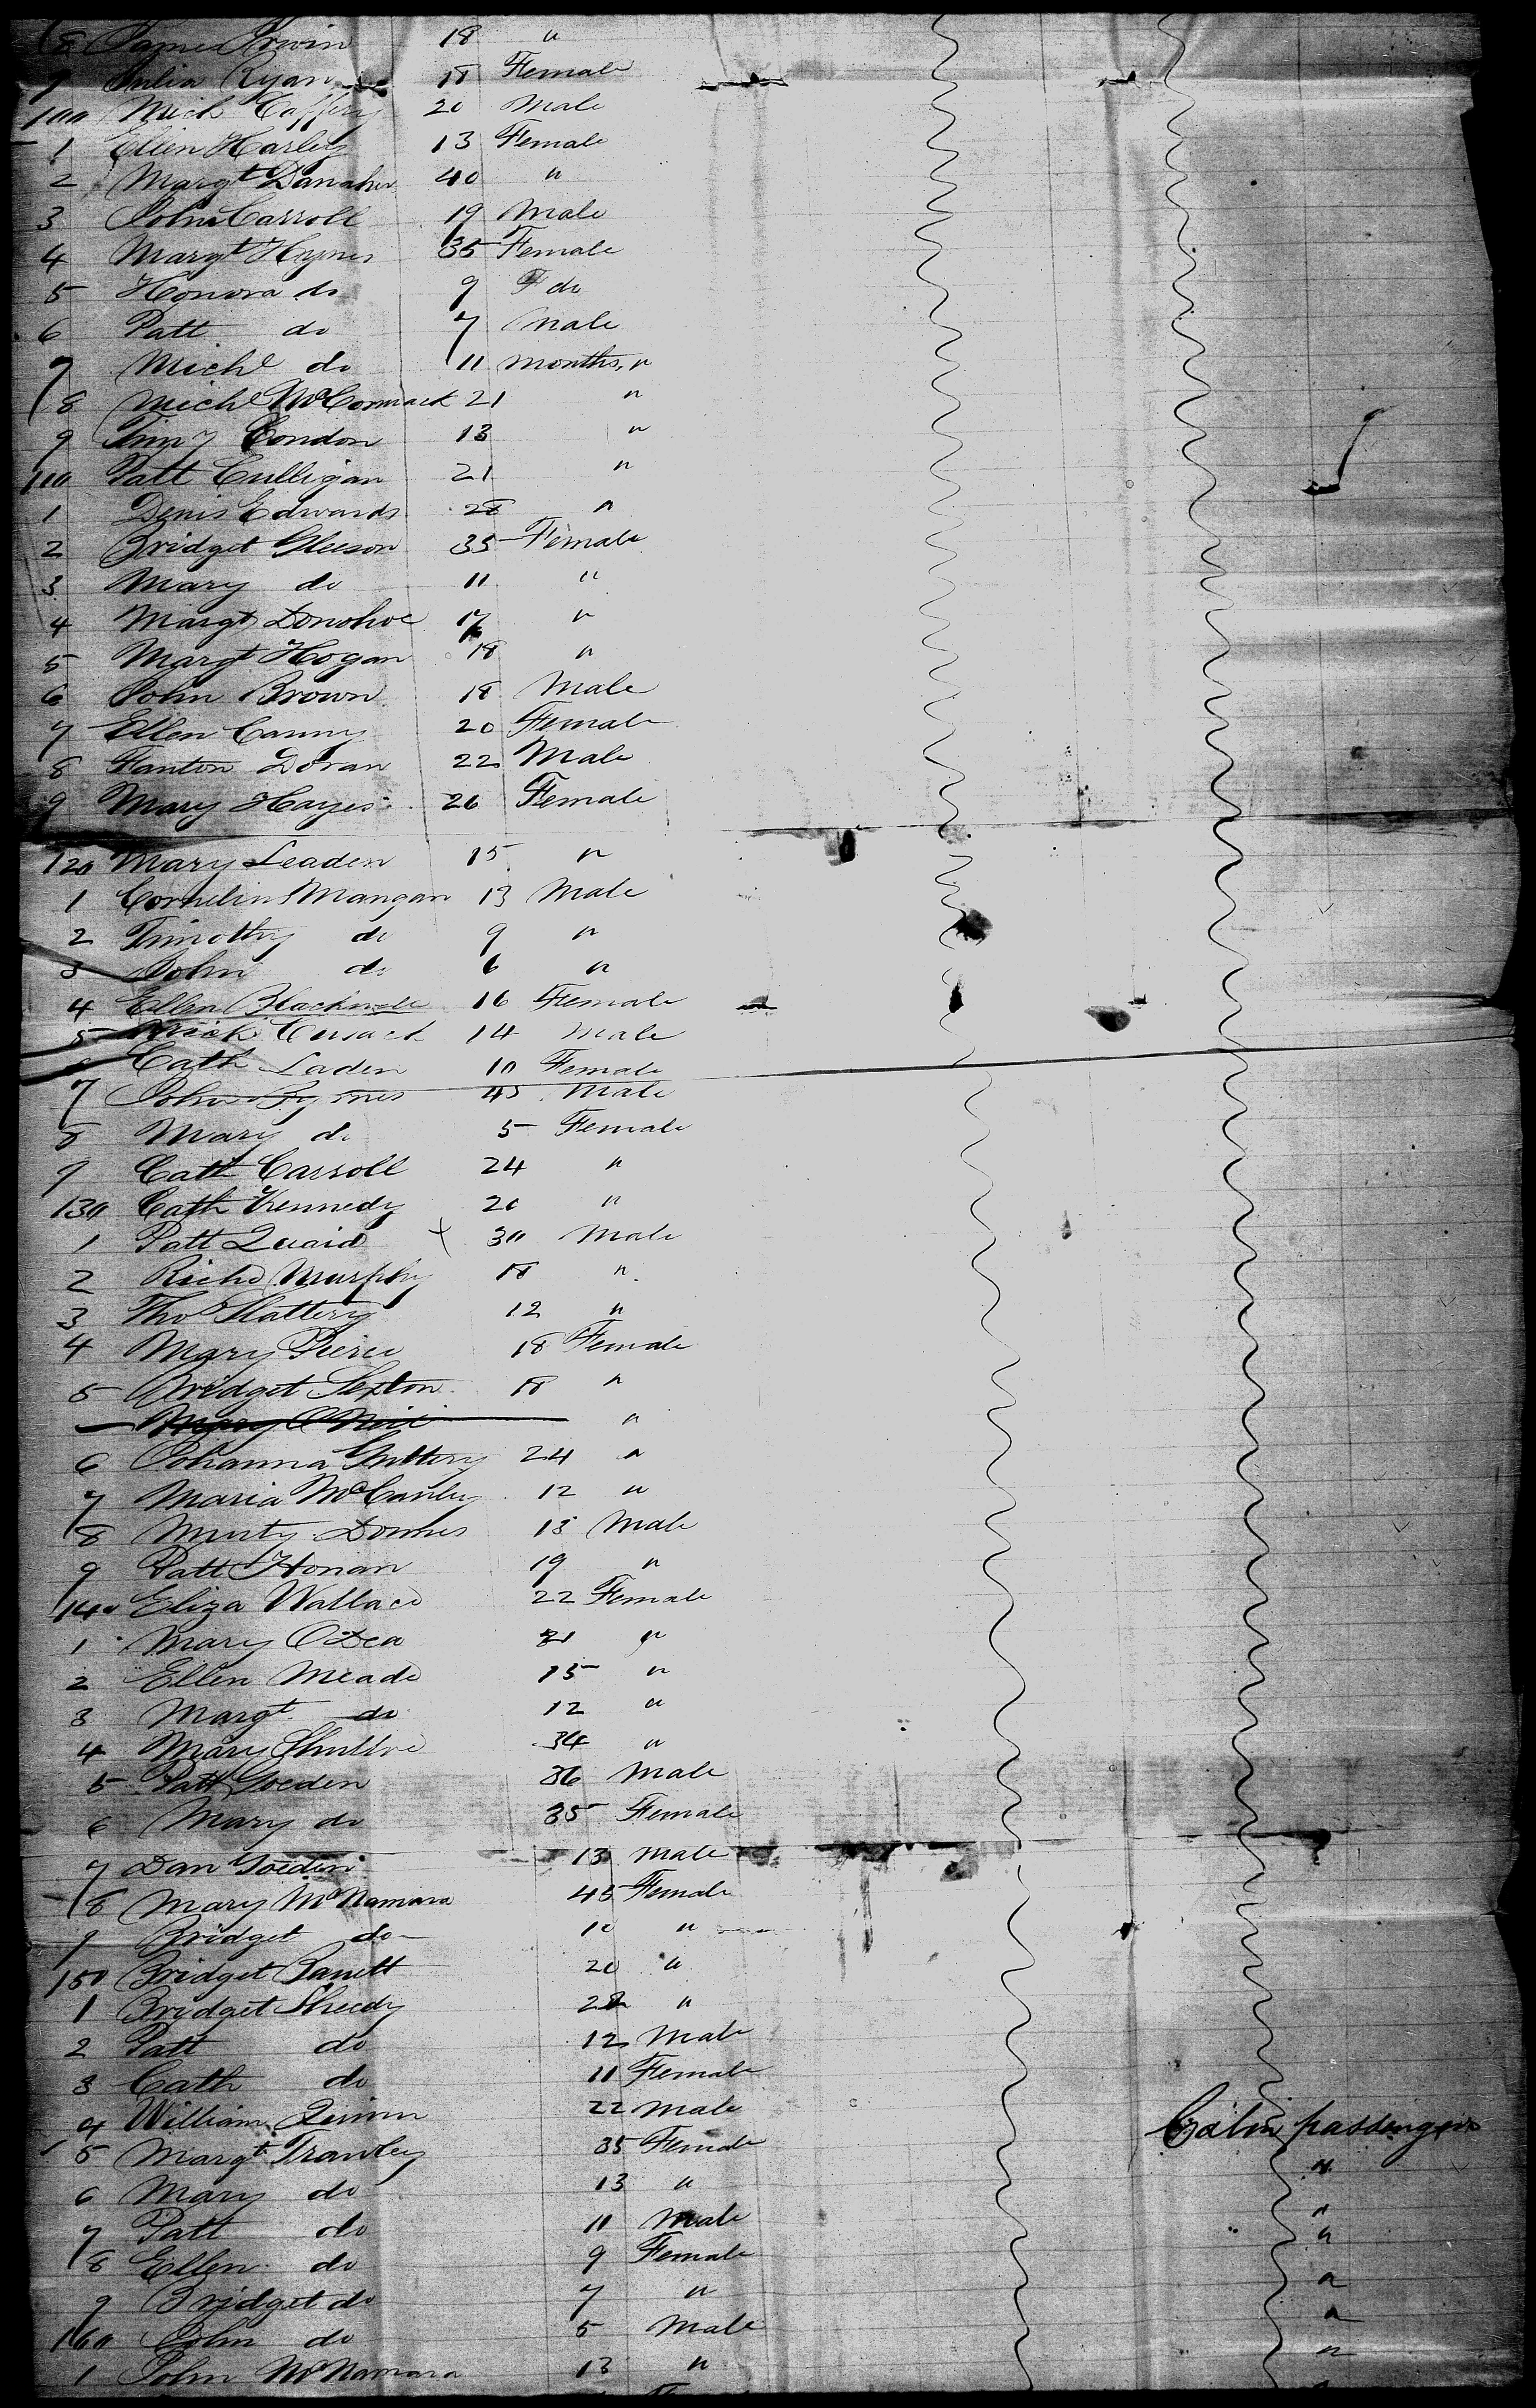 8 James Irwin 18 "
9 Julia Ryan 18 Female
100 Mich Caffery 20 Male
1 Ellen Harley 13 Female
2 Margt Danaher 40 "
3 John Carroll 19 Male
4 Margt Hynes 35 Female
5 Honora do 9 F do
6 Patt do 7 Male
7 Michl do 11 months, "
8 Michl McCormack 21 "
9 Timy Condon 13 "
110 Patt Culligan 21 "
1 Denis Edwards 28 "
2 Bridget Gleeson 35 Female
3 Mary do 11 "
4 Margt Donohoe 17 "
5 Margt Hogan 18 "
6 John Brown 18 Male
7 Ellen Canny 20 Female
8 Fanton Doran 22 Male
9 Mary Hayes 26 Female
120 Mary Leaden 15 "
1 Cornelius Mangan 13 Male
2 Timothy do 9 "
3 John do 6 "
4 Ellen Blackwell 16 Female
5 Mick Cusack 14 Male
Cath Laden 10 Female
7 John 45 Male
8 Mary do 5 Female
9 Cath Carroll 24 "
130 Cath Kennedy 20 "
1 Patt Quaid + 30 Male
2 Richd Murphy 18 "
3 Thos Slattery 12 "
4 Mary Pierce 18 Female
5 Bridget Sexton 18 "
Mary O Neil "
6 Johanna Guttery 24 "
7 Maria McCauley 12 "
8 Murty Downes 13 Male
9 Patt Honan 19 "
140 Eliza Wallace 22 Female
1 Mary O Dea 21 "
2 Ellen Meade 15 "
3 Margt do 12 "
4 Mary 34 "
5 Patt Soeden 36 Male
6 Mary do 35 Female
7 Dan Soeden 13 Male
8 Mary McNamara 45 Female
9 Bridget do 10 "
150 Bridget Barrett 20 "
1 Bridget Sheedy 28 "
2 Patt do 12 Male
3 Cath do 11 Female
4 William Quinn 22 Male Cabin passengers
5 Margt Frawley 35 Female "
6 Mary do 13 " "
7 Patt do 11 Male "
8 Ellen do 9 Female "
9 Bridget do 7 " "
160 John do 5 Male "
1 John McNamara 13 "